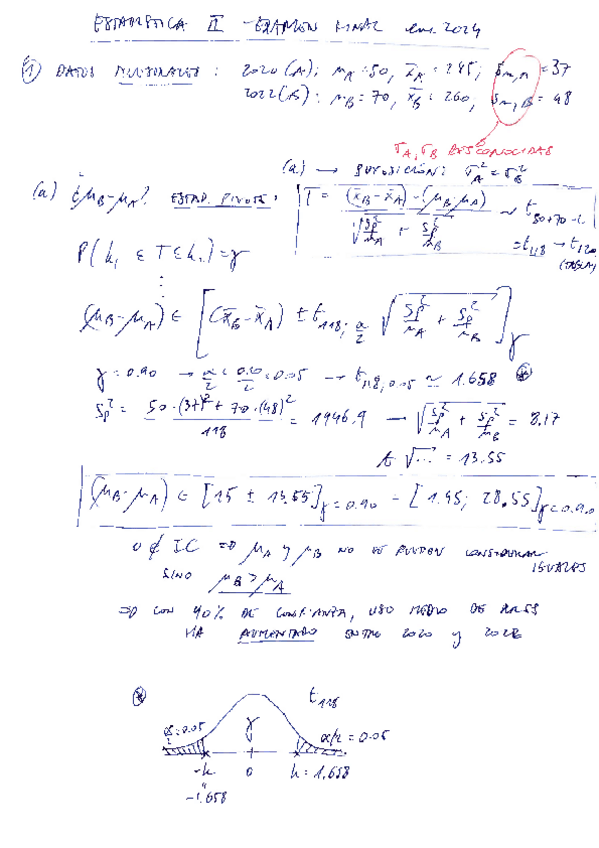 ESTADÍSTICA II - EXAMEN FINAL ene 2024
① DATOS MUESTRALES: 2020 (A): n_A = 50, x̄_A = 245; s_{n,A} = 37
2022 (B): n_B = 70, x̄_B = 260, s_{n,B} = 48
σ_A, σ_B DESCONOCIDAS
(a) → SUPOSICIÓN: σ_A² = σ_B²
(a) ¿μ_B - μ_A? ESTAD. PIVOTE: T = ((x̄_B - x̄_A) - (μ_B - μ_A)) / √(Sp²/n_A + Sp²/n_B) ~ t_{50+70-2}
= t_118 → t_120 (TABLA)
P(k₁ ≤ T ≤ k₂) = γ
⋮
(μ_B - μ_A) ∈ [(x̄_B - x̄_A) ± t_{118; α/2} √(Sp²/n_A + Sp²/n_B)]_γ
γ = 0.90 → α/2 = 0.10/2 = 0.05 → t_{118, 0.05} ≃ 1.658 ⊛
Sp² = (50·(37)² + 70·(48)²)/118 = 1946.9 → √(Sp²/n_A + Sp²/n_B) = 8.17
t√... = 13.55
(μ_B - μ_A) ∈ [15 ± 13.55]_{γ=0.90} = [1.45; 28.55]_{γ=0.90}
0 ∉ IC ⇒ μ_A y μ_B NO SE PUEDEN CONSIDERAR IGUALES
SINO μ_B > μ_A
⇒ CON 90% DE CONFIANZA, USO MEDIO DE
HA AUMENTADO ENTRE 2020 y 2022
⊛ t_118
α/2 = 0.05 γ α/2 = 0.05
-k 0 k = 1.658
-1.658